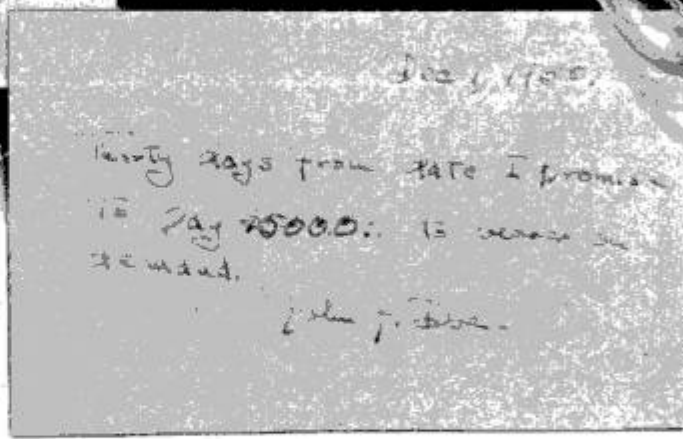 Dec 1, 1905.
Thirty days from date I promise
to pay $5000.: to bearer on
demand.
John J.